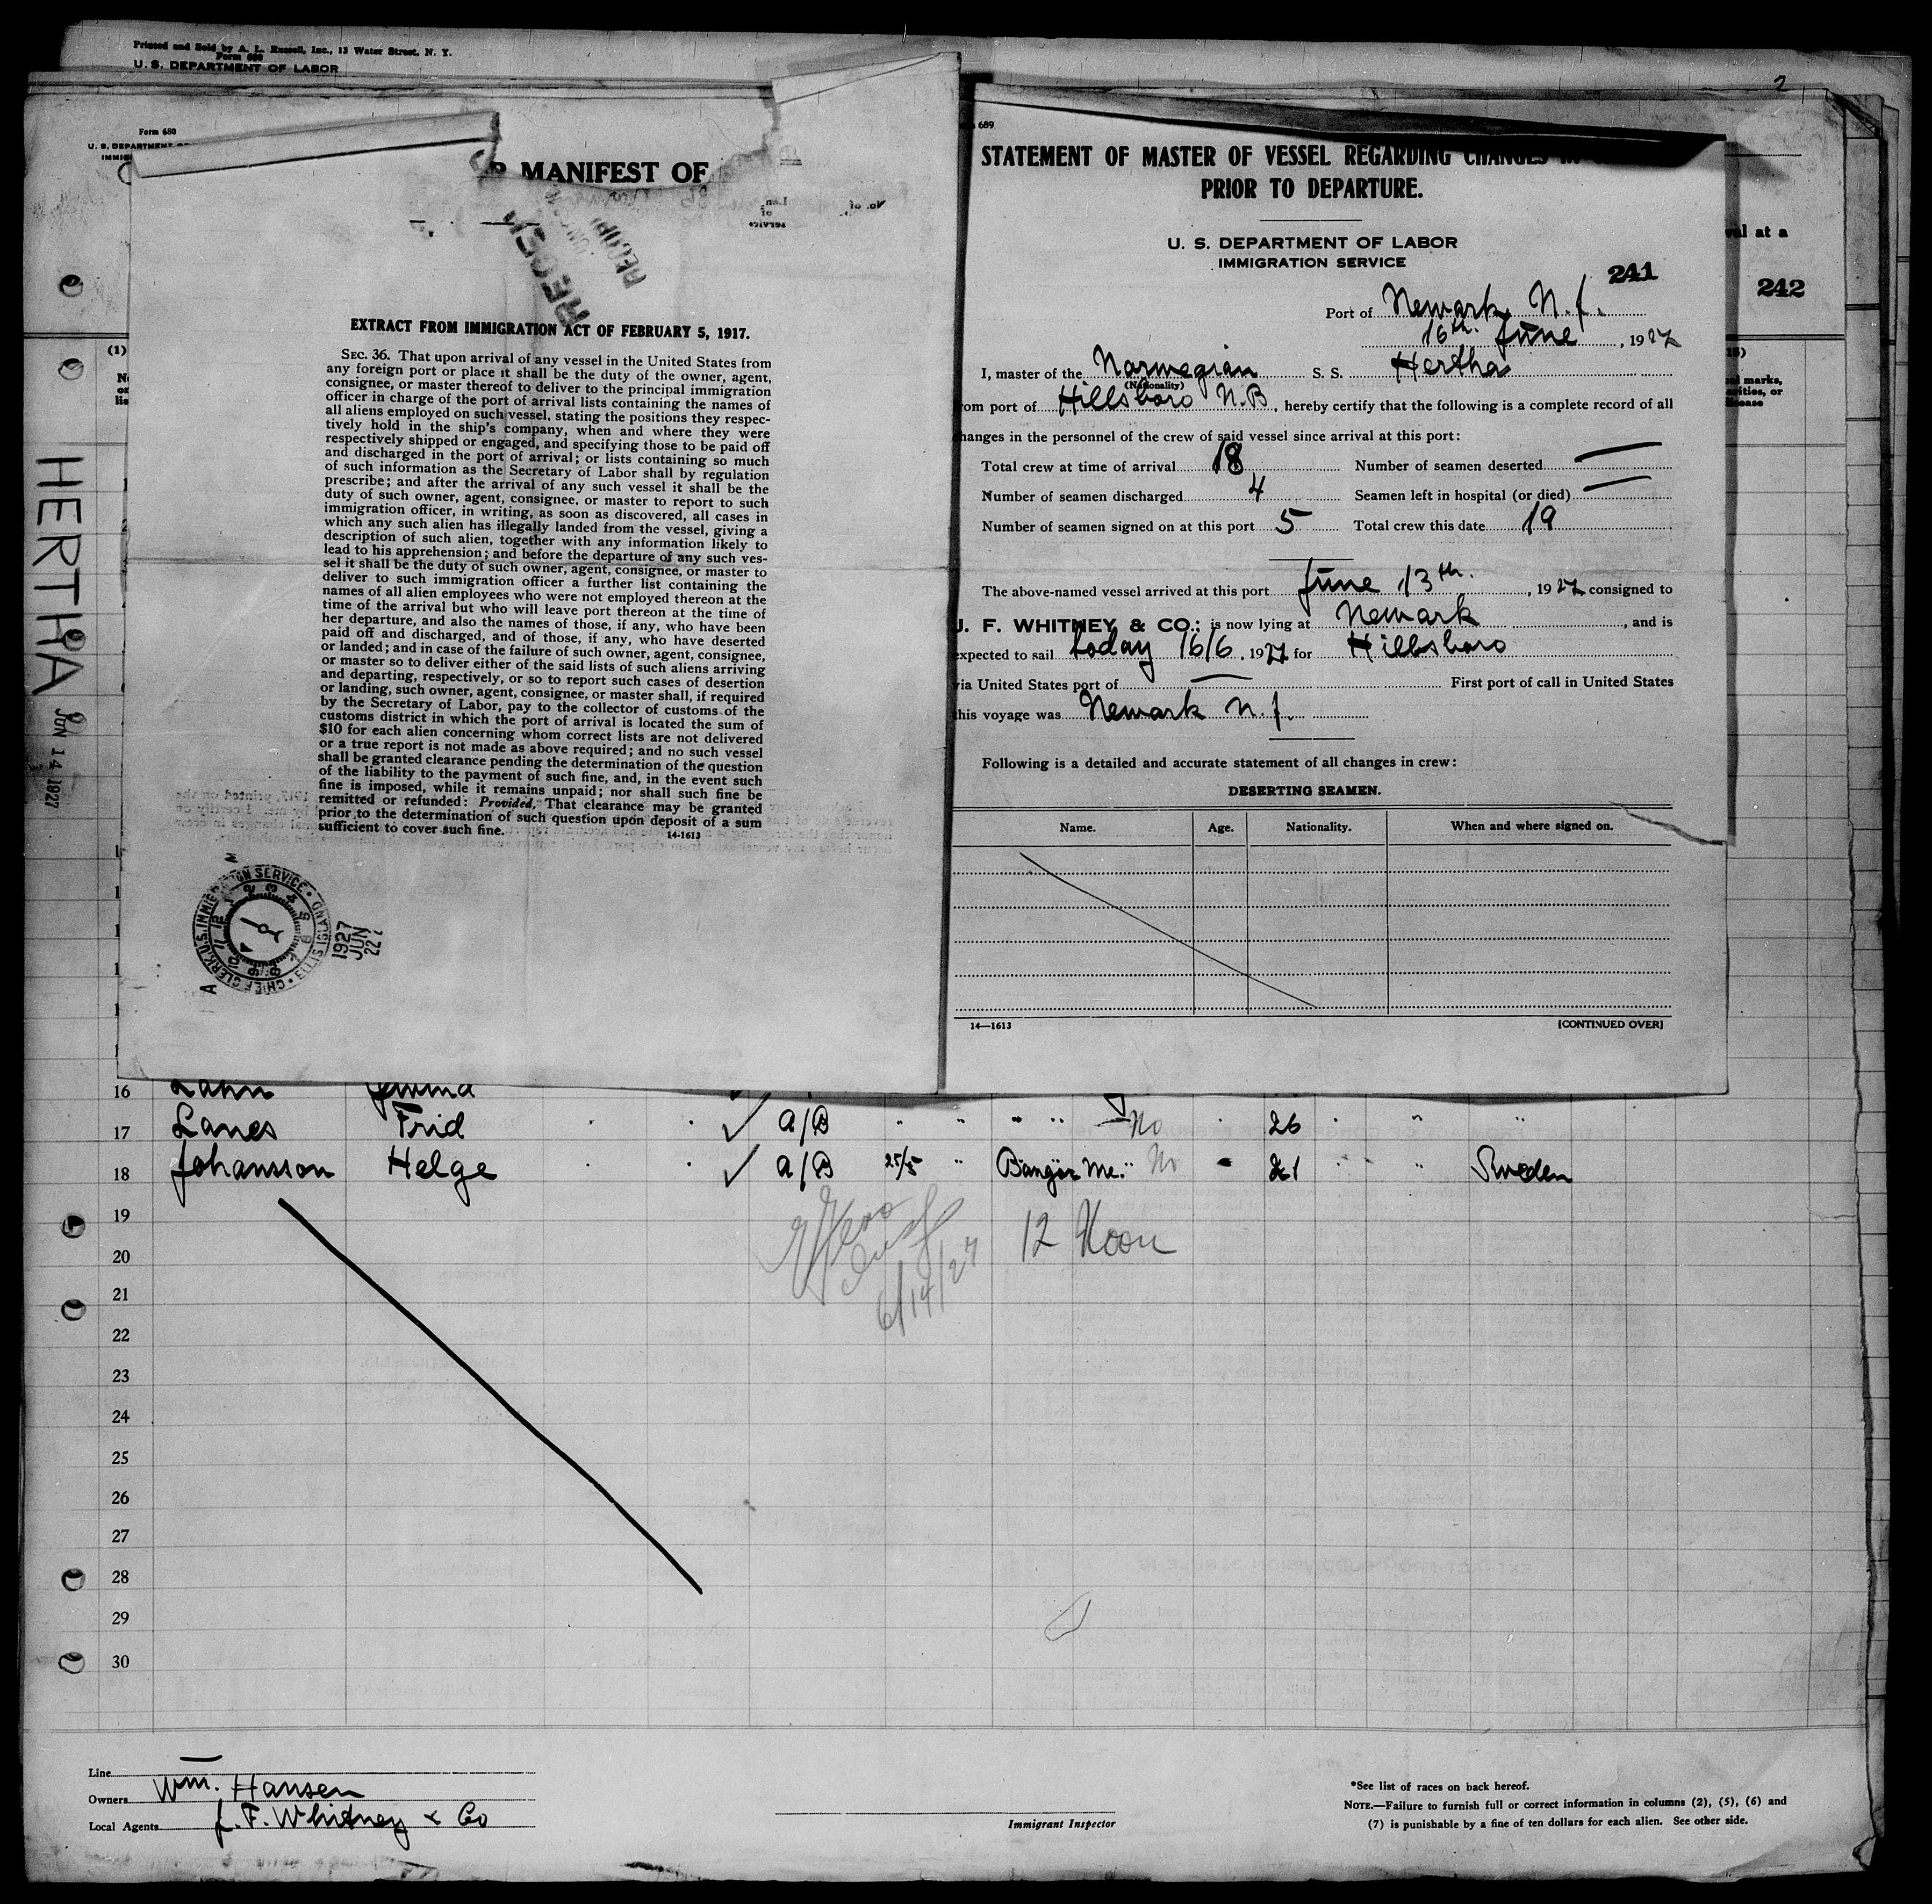 Printed and Sold by A. L. Russell, Inc., 13 Water Street, N. Y.
Form 680
U. S. DEPARTMENT OF LABOR
2
Form 680
U. S. DEPARTMENT OF
IMMIG
MANIFEST OF
EXTRACT FROM IMMIGRATION ACT OF FEBRUARY 5, 1917.
SEC. 36. That upon arrival of any vessel in the United States from
any foreign port or place it shall be the duty of the owner, agent,
consignee, or master thereof to deliver to the principal immigration
officer in charge of the port of arrival lists containing the names of
all aliens employed on such vessel, stating the positions they respec-
tively hold in the ship's company, when and where they were
respectively shipped or engaged, and specifying those to be paid off
and discharged in the port of arrival; or lists containing so much
of such information as the Secretary of Labor shall by regulation
prescribe; and after the arrival of any such vessel it shall be the
duty of such owner, agent, consignee, or master to report to such
immigration officer, in writing, as soon as discovered, all cases in
which any such alien has illegally landed from the vessel, giving a
description of such alien, together with any information likely to
lead to his apprehension; and before the departure of any such ves-
sel it shall be the duty of such owner, agent, consignee, or master to
deliver to such immigration officer a further list containing the
names of all alien employees who were not employed thereon at the
time of the arrival but who will leave port thereon at the time of
her departure, and also the names of those, if any, who have been
paid off and discharged, and of those, if any, who have deserted
or landed; and in case of the failure of such owner, agent, consignee,
or master so to deliver either of the said lists of such aliens arriving
and departing, respectively, or so to report such cases of desertion
or landing, such owner, agent, consignee, or master shall, if required
by the Secretary of Labor, pay to the collector of customs of the
customs district in which the port of arrival is located the sum of
$10 for each alien concerning whom correct lists are not delivered
or a true report is not made as above required; and no such vessel
shall be granted clearance pending the determination of the question
of the liability to the payment of such fine, and, in the event such
fine is imposed, while it remains unpaid; nor shall such fine be
remitted or refunded: Provided, That clearance may be granted
prior to the determination of such question upon deposit of a sum
sufficient to cover such fine.
14-1613
CHIEF CLERK U.S. IMMIGRATION SERVICE • ELLIS ISLAND
1927
JUN
22
HERTHA
JUN 14 1927
689
STATEMENT OF MASTER OF VESSEL REGARDING CHANGES IN
PRIOR TO DEPARTURE.
U. S. DEPARTMENT OF LABOR
IMMIGRATION SERVICE
241
242
Port of Newark, N. J.
16th. June, 1927
I, master of the Norwegian S. S. Hertha
(Nationality)
om port of Hillsboro N.B, hereby certify that the following is a complete record of all
hanges in the personnel of the crew of said vessel since arrival at this port:
Total crew at time of arrival 18 Number of seamen deserted —
Number of seamen discharged 4 Seamen left in hospital (or died) —
Number of seamen signed on at this port 5 Total crew this date 19
The above-named vessel arrived at this port June 13th., 1927 consigned to
J. F. WHITNEY & CO.; is now lying at Newark, and is
expected to sail today 16/6, 1927 for Hillsboro
via United States port of — First port of call in United States
this voyage was Newark N. J.
Following is a detailed and accurate statement of all changes in crew:
DESERTING SEAMEN.
Name. Age. Nationality. When and where signed on.
14—1613 [CONTINUED OVER]
val at a
marks,
(1)
16 Lahn
17 Lanes Frid ✓ A/B " " " " No 26 " "
18 Johansson Helge ✓ A/B 25/5 " Bangor Me. " No 21 " Sweden
19
6/14/27 12 Noon
20
21
22
23
24
25
26
27
28
29
30
Line —
Owners Wm. Hansen
Local Agents J. F. Whitney & Co
Immigrant Inspector
*See list of races on back hereof.
NOTE.—Failure to furnish full or correct information in columns (2), (5), (6) and
(7) is punishable by a fine of ten dollars for each alien. See other side.